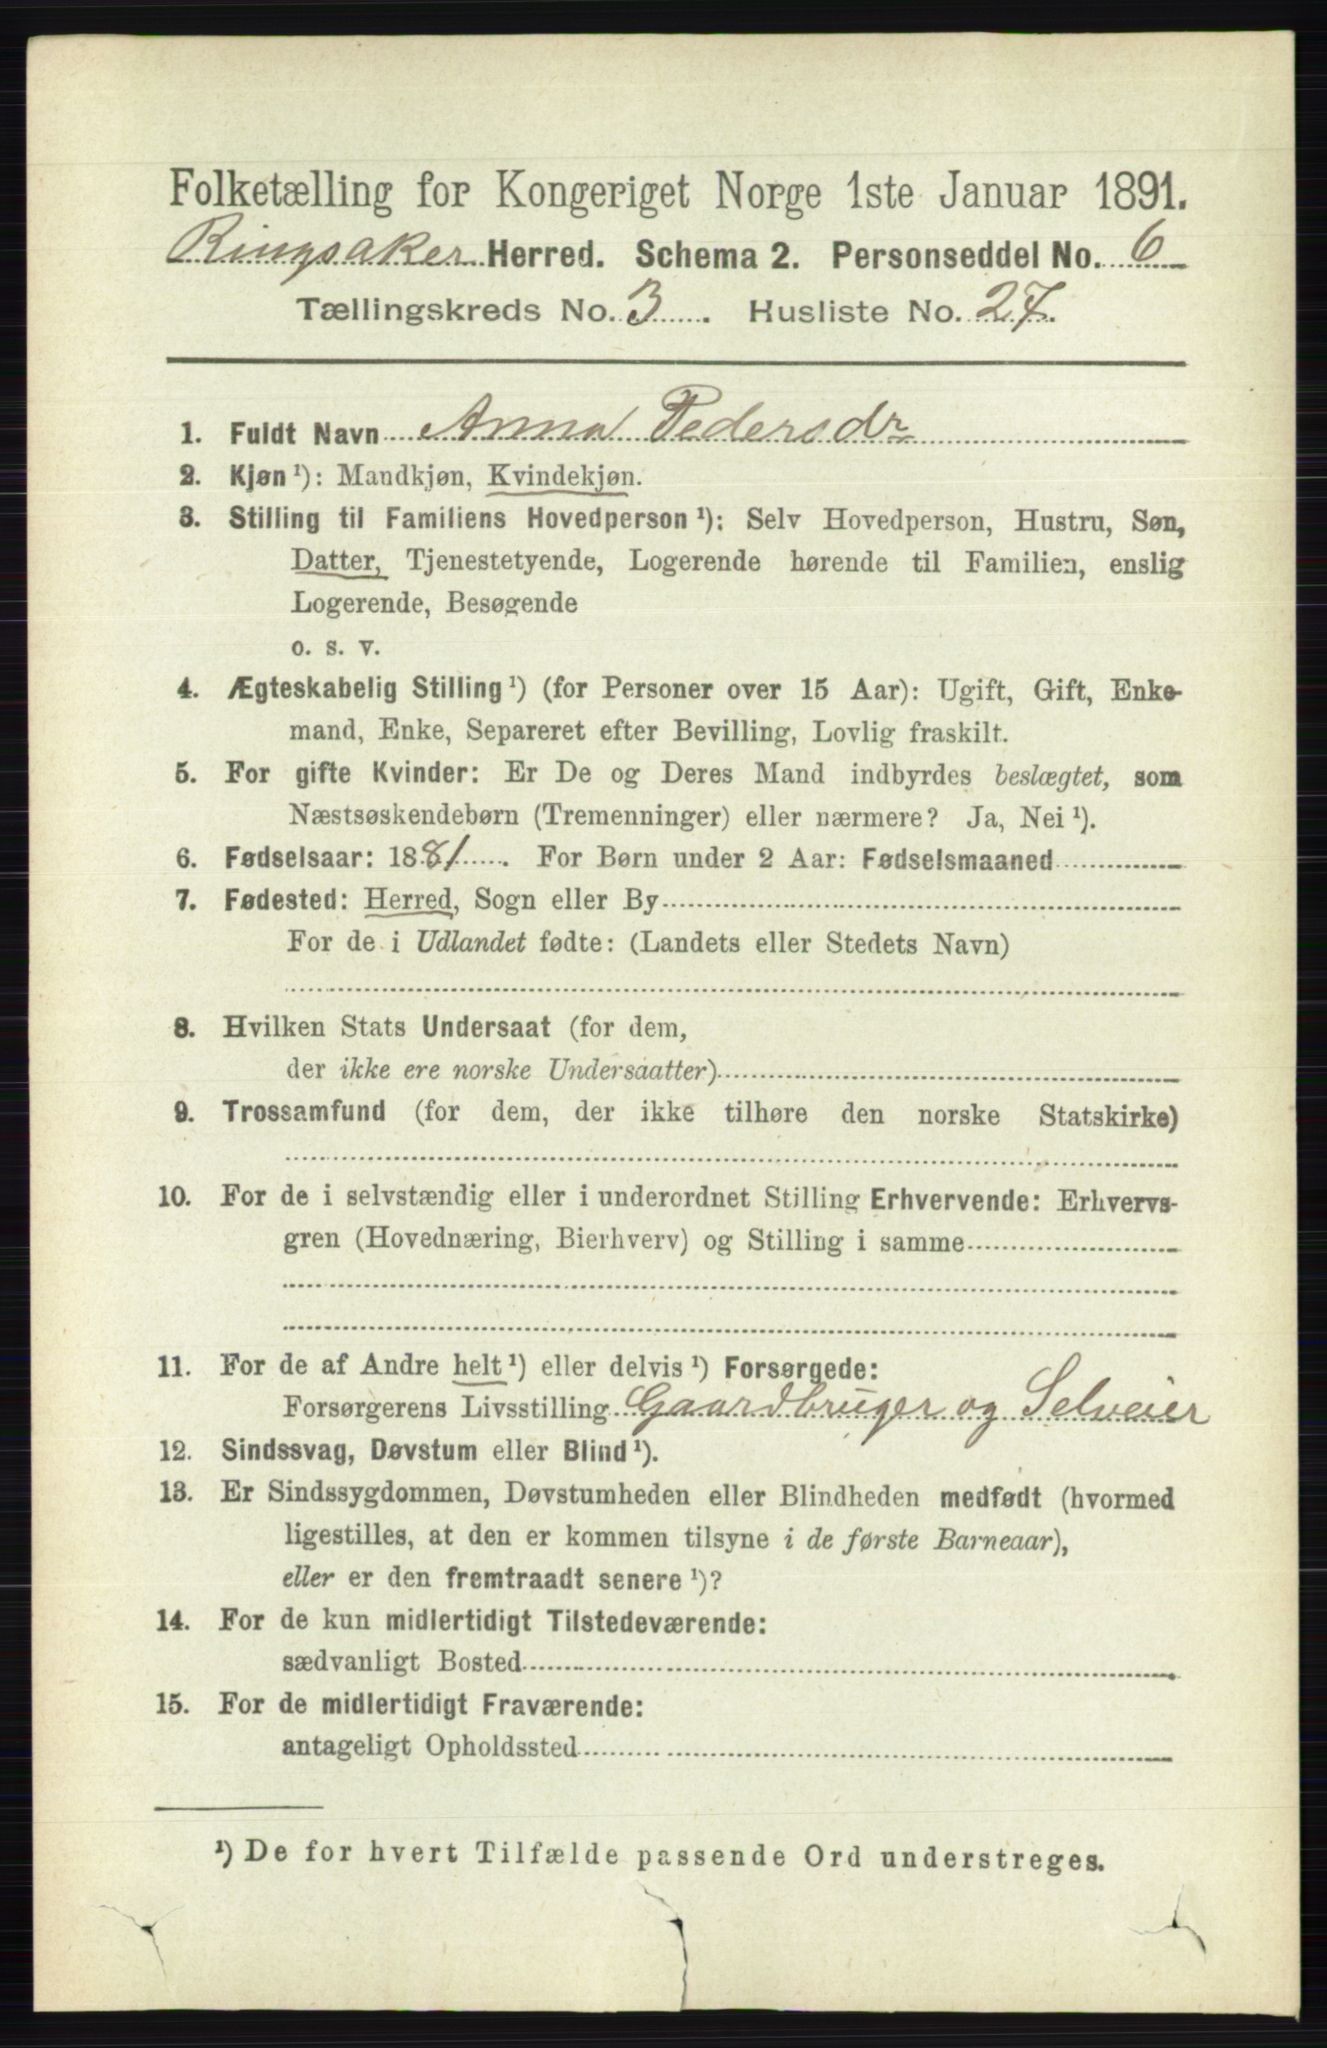 Folketælling for Kongeriget Norge 1ste Januar 1891.
Ringsaker Herred. Schema 2. Personseddel No. 6
Tællingskreds No. 3. Husliste No. 27.
1. Fuldt Navn Anna Pedersdr
2. Kjøn ¹): Mandkjøn, Kvindekjøn.
3. Stilling til Familiens Hovedperson ¹): Selv Hovedperson, Hustru, Søn,
Datter, Tjenestetyende, Logerende hørende til Familien, enslig
Logerende, Besøgende
o. s. v.
4. Ægteskabelig Stilling ¹) (for Personer over 15 Aar): Ugift, Gift, Enke-
mand, Enke, Separeret efter Bevilling, Lovlig fraskilt.
5. For gifte Kvinder: Er De og Deres Mand indbyrdes beslægtet, som
Næstsøskendebørn (Tremenninger) eller nærmere? Ja, Nei ¹).
6. Fødselsaar: 1881. For Børn under 2 Aar: Fødselsmaaned
7. Fødested: Herred, Sogn eller By
For de i Udlandet fødte: (Landets eller Stedets Navn)
8. Hvilken Stats Undersaat (for dem,
der ikke ere norske Undersaatter)
9. Trossamfund (for dem, der ikke tilhøre den norske Statskirke)
10. For de i selvstændig eller i underordnet Stilling Erhvervende: Erhvervs-
gren (Hovednæring, Bierhverv) og Stilling i samme
11. For de af Andre helt ¹) eller delvis ¹) Forsørgede:
Forsørgerens Livsstilling Gaardbruger og Selveier
12. Sindssvag, Døvstum eller Blind ¹).
13. Er Sindssygdommen, Døvstumheden eller Blindheden medfødt (hvormed
ligestilles, at den er kommen tilsyne i de første Barneaar),
eller er den fremtraadt senere ¹)?
14. For de kun midlertidigt Tilstedeværende:
sædvanligt Bosted
15. For de midlertidigt Fraværende:
antageligt Opholdssted
¹) De for hvert Tilfælde passende Ord understreges.